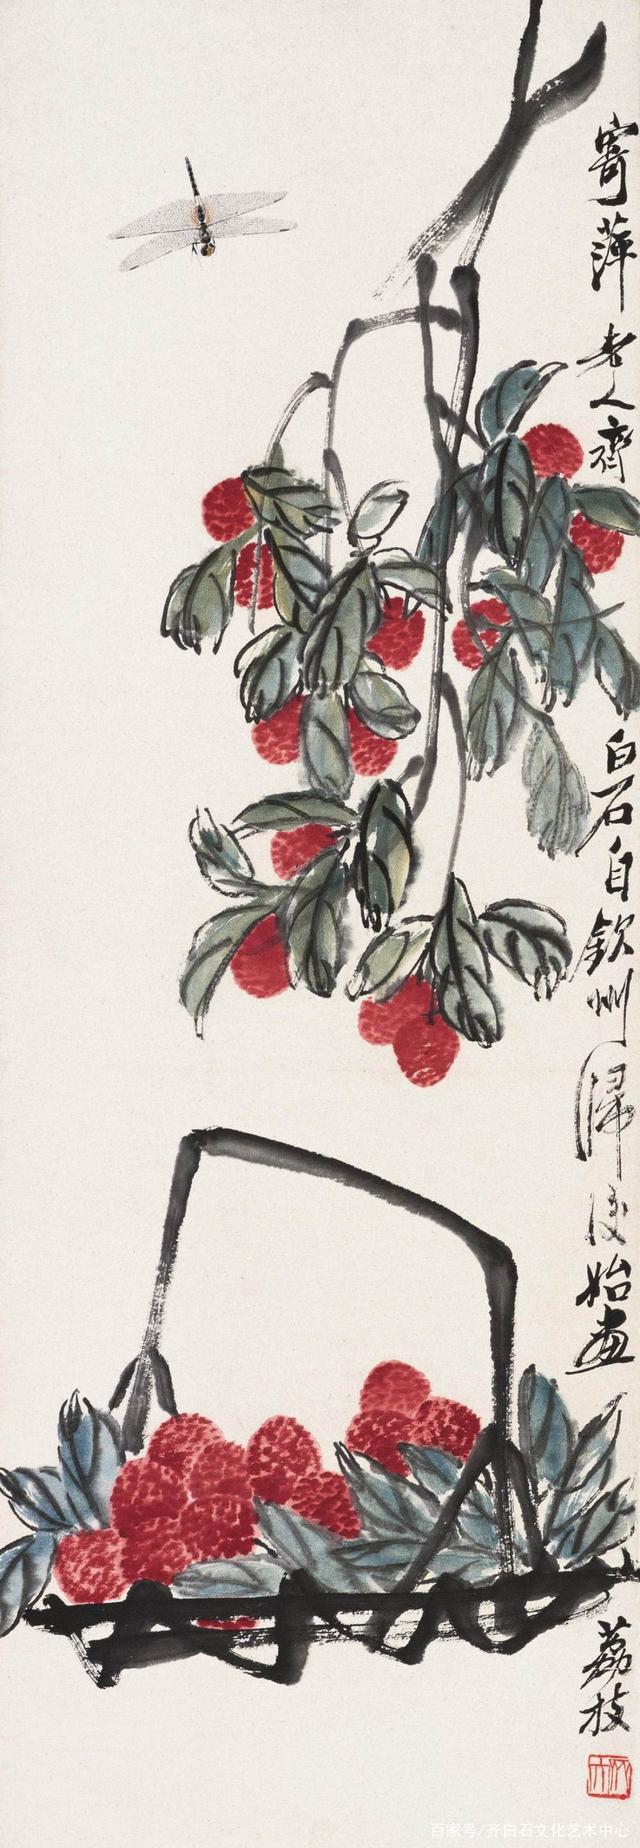 寄萍老人齊白石自欽州歸後始畫荔枝
百家号/齐白石文化艺术中心